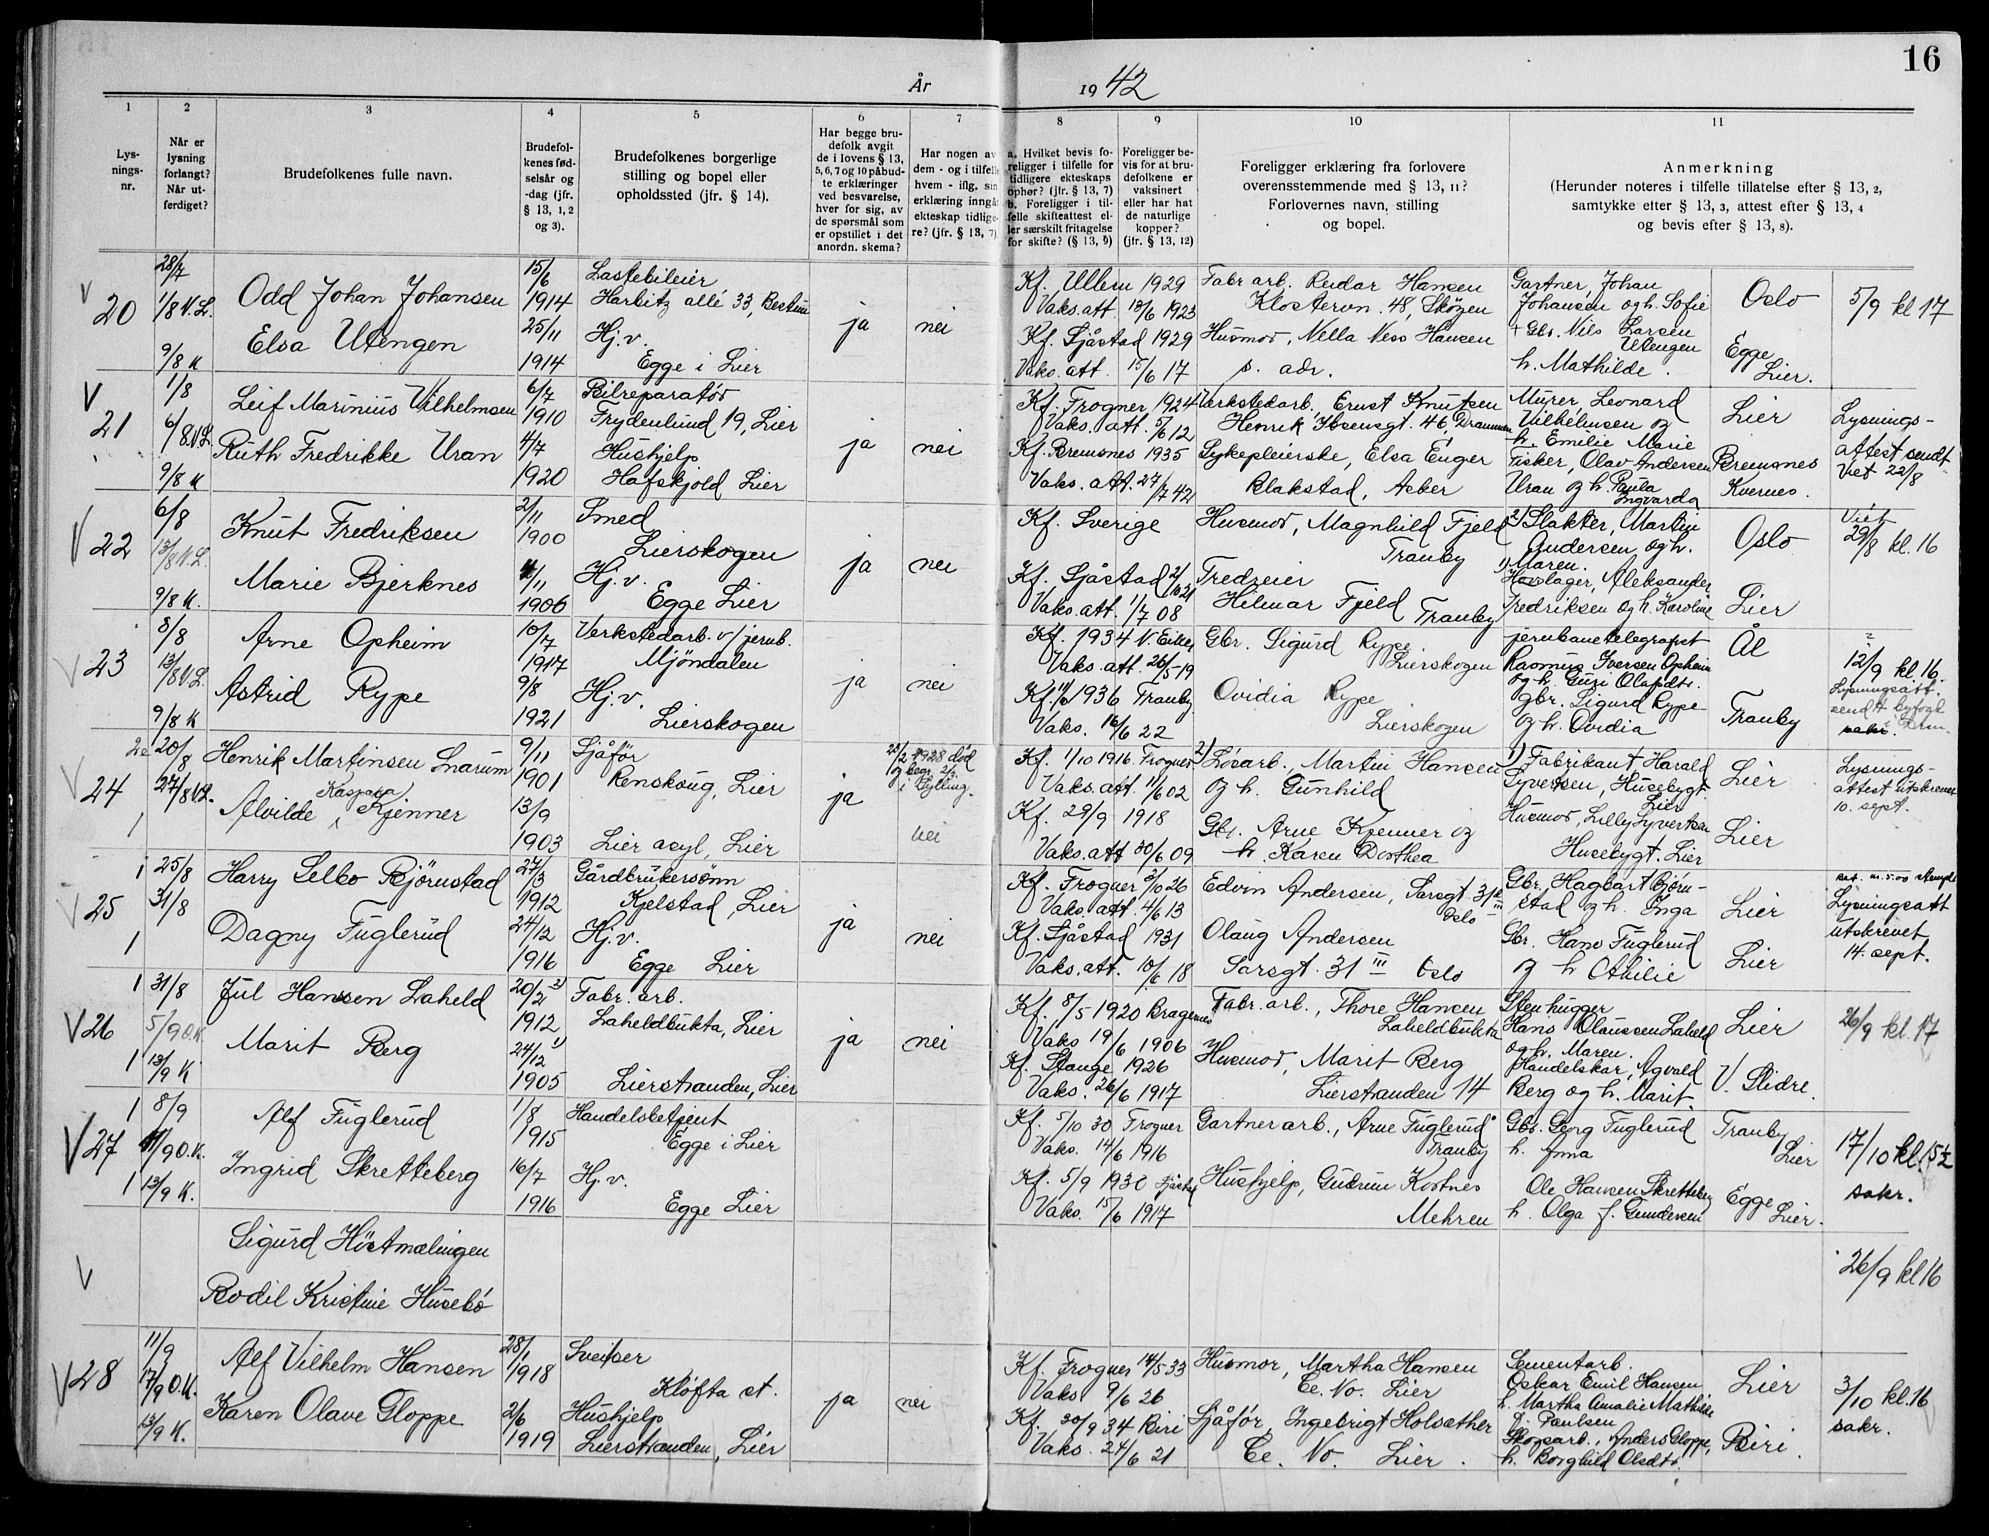 16
År 1942
1
2
3
4
5
6
7
8
9
10
11
Lys-
nings-
nr.
Når er
lysning
forlangt?
Når ut-
ferdiget?
Brudefolkenes fulle navn.
Brudefol-
kenes fød-
selsår og
-dag (jfr.
§ 13, 1, 2
og 3).
Brudefolkenes borgerlige
stilling og bopel eller
opholdssted (jfr. § 14).
Har begge bru-
defolk avgit
de i lovens § 13,
5, 6, 7 og 10 påbud-
te erklæringer
ved besvarelse,
hver for sig, av
de spørsmål som
er opstillet i det
anordn. skema?
Har nogen av
dem - og i tilfelle
hvem - iflg. sin
erklæring inngåt
ekteskap tidlige-
re? (jfr. § 13, 7)
a. Hvilket bevis fo-
religger i tilfelle for
tidligere ekteskaps
ophør? (jfr. § 13, 7)
b. Foreligger i til-
felle skifteattest el-
ler særskilt fritagelse
for skifte? (§ 13, 9)
Foreligger be-
vis for at bru-
defolkene er
vaksinert
eller har hat
de naturlige
kopper?
(jfr. § 13, 12)
Foreligger erklæring fra forlovere
overensstemmende med § 13, 11?
Forlovernes navn, stilling
og bopel.
Anmerkning
(Herunder noteres i tilfelle tillatelse efter § 13, 2,
samtykke efter § 13, 3, attest efter § 13, 4
og bevis efter § 13, 8).
V 20
28/7
1/8 V.L.
9/8 K
Odd Johan Johansen
Elsa Utengen
15/6
1914
25/11
1914
Lastebileier
Harbitz allé 33, Bestum
Hj.v.
Egge i Lier
ja
nei
Kf. Ullern 1929
Vaks.att. 18/6 1923
Kf. Sjåstad 1929
Vaks.att. 15/6 17
Fabr arb. Reidar Hansen
Klostervn. 48, Skøyen
Husmor, Nella Ness Hansen
s. adr.
Gartner, Johan
Johansen og h. Sofie
Gbr. Nils Larsen
Utengen
h. Mathilde.
Oslo
Egge
Lier.
5/9 kl 17
V 21
1/8
6/8 V.L.
9/8 K
Leif Marinius Vilhelmsen
Ruth Fredrikke Uran
6/7
1910
4/7
1920
Bilreparatør
Frydenlund 19, Lier
Hushjelp
Hafskjold Lier
ja
nei
Kf. Frogner 1924
Vaks. att. 5/6 12
Kf. Bremsnes 1935
Vaks. att. 27/7 42
Verkstedarb. Ernst Knutsen
Henrik Ibsensgt. 46, Drammen
Sykepleierske, Elsa Enger
Blakstad, Asker
Murer, Leonard
Vilhelmsen og
h. Emilie Marie
Fisker, Olav Andersen
Uran og h. Paula
Ingvarda
Lier
Bremsnes
Kvernes.
Lysnings-
attest sendt
Viet 22/8
V 22
6/8
13/8 V.L.
9/8 K.
Knut Fredriksen
Marie Bjerknes
2/11
1900
4/11
1906
Smed
Lierskogen
Hj.v.
Egge Lier
ja
nei
Kf. Sverige
Kf. Sjåstad 2/10 21
Vaks. att. 1/7 08
Husmor, Magnhild Fjeld
Tranby
Tredreier
Hilmar Fjeld Tranby
2) Slakter, Martin
Andersen og h.
1) Maren.
Hovslager, Aleksander
Fredriksen og h. Karoline
Oslo
Lier
Viet
29/8 kl. 16
V 23
8/8
13/8 V.L.
9/8 K
Arne Opheim
Astrid Rype
10/7
1917
9/8
1921
Verkstedarb. v/jernb.
Mjöndalen
Hj.v.
Lierskogen
ja
nei
Kf. 1934 N. Eiker
Vaks. att. 26/5-19
1936 Tranby
Vaks. 16/6 22
Gbr. Sigurd Rype
Lierskogen
Ovidia Rype
Lierskogen
jernbanetelegrafist
Rasmus Iversen Opheim
og h. Guri Olafsdtr.
gbr. Sigurd Rype
og h. Ovidia
Ål
Tranby
12/9 kl. 16.
Lysningsatt.
sendt byfogd
sakr.
V 24
20/8
27/8 V.L.
Henrik Martinsen Snarum
Kaspara
Alvilde Kjenner
9/11
1901
13/9
1903
Sjåfør
Renskoug, Lier
Lier asyl, Lier
ja
25/2 1928 død
i Sylling.
nei
Kf. 1/10 1916. Frogner
Vaks. att. 11/6 02
Kf. 29/9 1918
Vaks. att 30/6 09
2) Løsarb., Martin Hansen
og h. Gunhild
Gbr. Arne Kjenner og
h. Karen Dorthea
1) Fabrikant Harald
Syvertsen, Husebygt.
Lier
Husmor, Lilly Syvertsen
Husebygt. Lier
Lier
Lier
Lysnings-
attest utskrevet
10. sept.
V 25
25/8
31/8
Harry Selbo Bjørnstad
Dagny Fuglerud
27/3
1912
24/12
1916
Gårdbrukersønn
Kjelstad, Lier
Hj.v.
Egge Lier
ja
nei
Kf. Frogner 3/10 26
Vaks. att 4/6 13
Kf. Sjåstad 1931
Vaks. att. 10/6 18
Edvin Andersen, Sarsgt. 31 III
Oslo
Olaug Andersen
Sarsgt. 31 III Oslo
Gbr. Hagbart Bjørn-
stad og h. Inga
Gbr. Hans Fuglerud
og h. Othilie
Lier
Lier
Lysningsatt
utskrevet
14. sept.
V 26
31/8
5/9 O.K.
13/9 K
Jul Hansen Laheld
Marit Berg
20/2 2)
1912
24/12 1)
1905
Fabr. arb.
Laheldbukta, Lier
Lierstranden, Lier
ja
nei
Kf. 8/5 1920 Bragernes
Vaks 19/6 1906
Kf. Stange 1926
Vaks. 26/6 1917
Fabr. arb., Thore Hansen
Laheldbukta
Husmor, Marit Berg
Lierstranden 14
Stenhugger
Hans Olaussen Laheld
og h. Maren.
Handelskar, Agvald
Berg og h. Marit.
Lier
V. Slidre.
26/9 kl. 17
V 27
8/9
11/9 O.K.
13/9 K.
Alf Fuglerud
Ingrid Skretteberg
1/8
1915
16/7
1916
Handelsbetjent
Egge i Lier
Hj.v.
Egge Lier
Kf. 5/10 30 Frogner
Vaks. 14/6 1916
Kf. 5/9 1930 Sjåstad
Vaks. 15/6 1917
Gartnerarb., Arne Fuglerud
Tranby
Hushjelp, Gudrun Kostnes
Mehren
Gbr. Georg Fuglerud
h. Anna
Ole Hansen Skretteberg
h. Olga f. Gundersen
Tranby
Lier
Egge
Lier.
17/10 kl. 15½
sakr.
V
Sigurd Höstmælingen
Bodil Kristine Husebö
26/9 kl 16
V 28
11/9
17/9 O.K.
13/9 K.
Alf Vilhelm Hansen
Karen Olave Gloppe
28/1
1918
2/6
1919
Sveiser
Kløfta st.
Hushjelp
Lierstranden, Lier
ja
nei
Kf. Frogner 14/5 33
Vaks 9/6 26
Kf. 30/9 34 Biri
Vaks. 24/6 21
Husmor, Martha Hansen
Ce. No. Lier
Sjåfør, Ingebrigt Holsæther
Ce. No. Lier.
Sementarb.
Oskar Emil Hansen
h. Martha Amalie Mathilde
f. Paulsen
Skogsarb., Anders Gloppe,
h. Borghild Olsdtr.
Lier
Biri.
3/10 kl. 16
sakr.